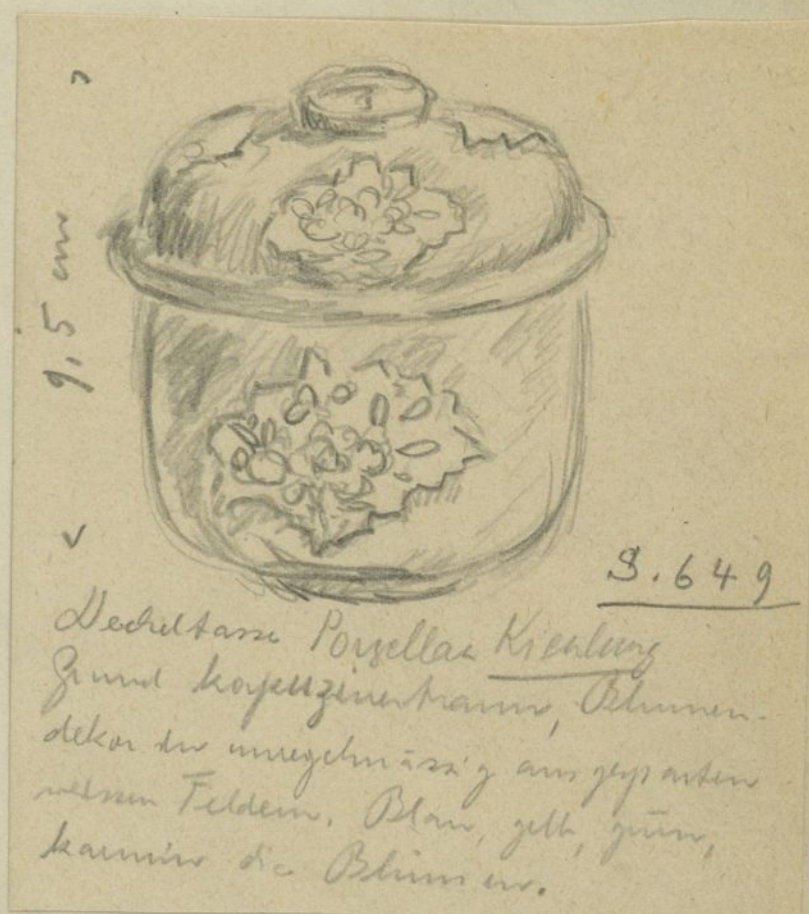 9,5 cm
S. 649
Deckeltasse Porzellan Kienlung
Grund kapuzinerbraun, Blumen-
dekor in unregelmässig ausgesparten
weissen Feldern. Blau, gelb, grün,
karmin die Blumen.